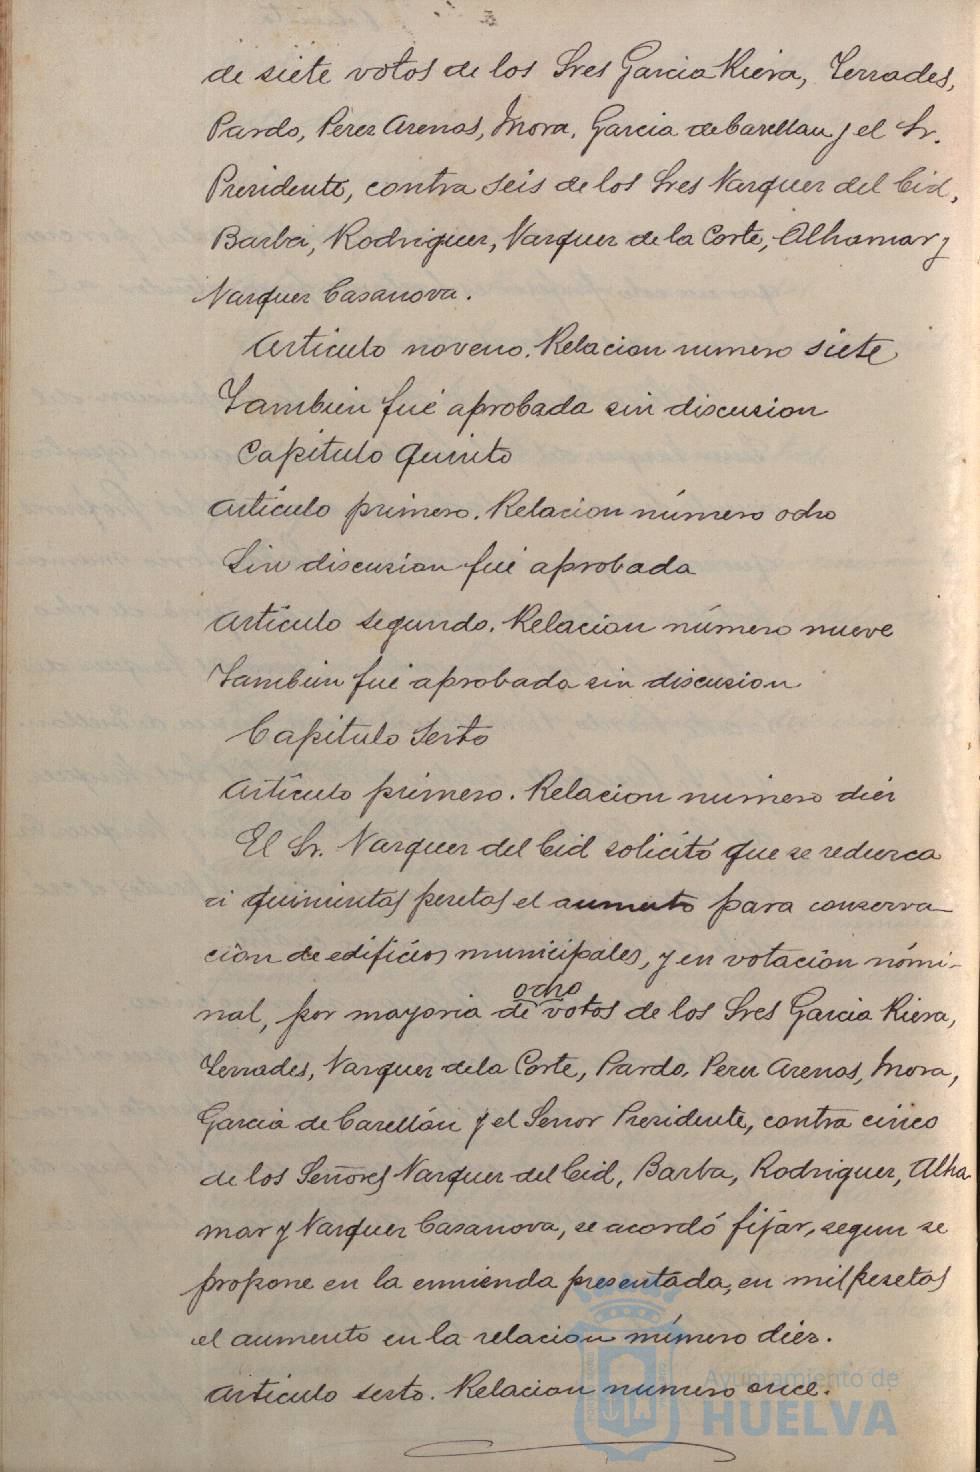 de siete votos de los Sres Garcia Riera, Terrades,
Pardo, Perez Arenas, Mora, Garcia de Carellan y el Sr.
Presidente, contra seis de los Sres Vazquez del Cid,
Barba, Rodriguez, Vazquez de la Corte, Alhamar y
Vazquez Casanova.
Artículo noveno. Relacion numero siete
Tambien fué aprobada sin discusion
Capitulo Quinto
Artículo primero. Relacion número ocho
Sin discusion fué aprobada
Artículo segundo. Relacion número nueve
Tambien fué aprobada sin discusion
Capitulo Sesto
Artículo primero. Relacion numero diez
El Sr. Vazquez del Cid solicitó que se reduzca
á quinientas pesetas el aumento para conserva-
ción de edificios municipales, y en votación nómi-
ocho
nal, por mayoria de votos de los Sres Garcia Riera,
Terrades, Vazquez de la Corte, Pardo, Perez Arenas, Mora,
Garcia de Carellán y el Señor Presidente, contra cinco
de los Señores Vazquez del Cid, Barba, Rodriguez, Alha
mar y Vazquez Casanova, se acordó fijar, segun se
propone en la enmienda presentada, en mil pesetas
el aumento en la relacion número diez.
Artículo sesto. Relacion numero once.
Ayuntamiento de
HUELVA